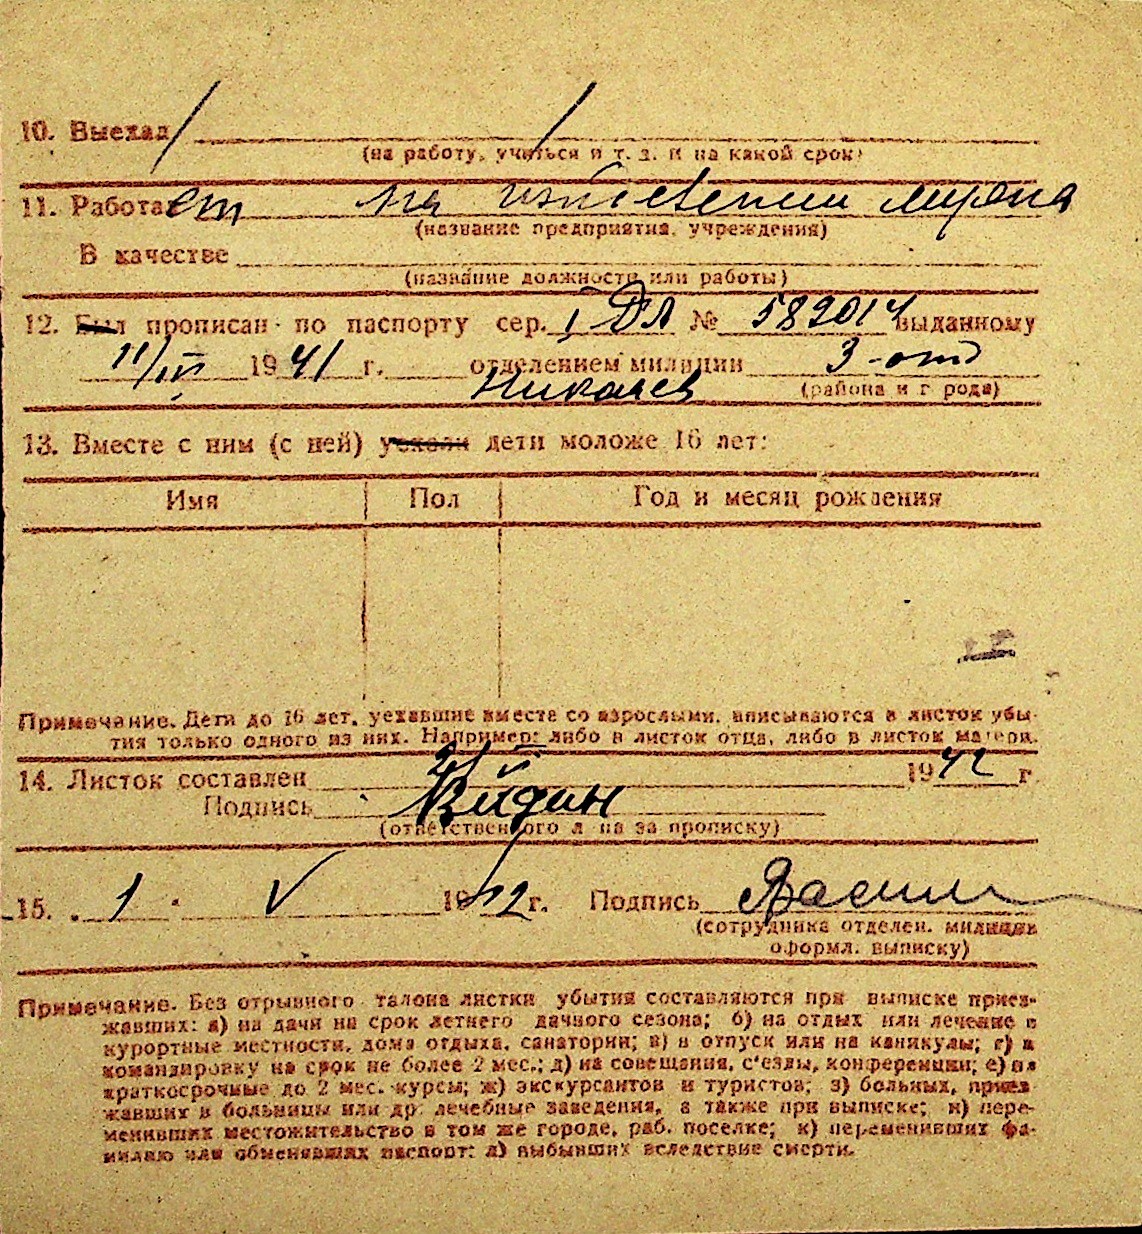 10. Выехал
(на работу, учиться и т. д. и на какой срок)
11. Работает на
(название предприятия, учреждения)
В качестве
(название должности или работы)
12. Был прописан по паспорту сер. I ДЛ № 589014 выданному
11/IV 1941 г. отделением милиции 3-отд
Николаев (района и города)
13. Вместе с ним (с ней) уехали дети моложе 16 лет:
Имя Пол Год и месяц рождения
Примечание. Дети до 16 лет, уехавшие вместе со взрослыми, вписываются в листок убы-
тия только одного из них. Например: либо в листок отца, либо в листок матери.
14. Листок составлен 1942 г.
Подпись
(ответственного лица за прописку)
15. 1 V 1942 г. Подпись
(сотрудника отделен. милиции
оформл. выписку)
Примечание. Без отрывного талона листки убытия составляются при выписке приез-
жавших: а) на дачи на срок летнего дачного сезона; б) на отдых или лечение в
курортные местности, дома отдыха, санатории; в) в отпуск или на каникулы; г) в
командировку на срок не более 2 мес.; д) на совещания, с'езды, конференции; е) на
краткосрочные до 2 мес. курсы; ж) экскурсантов и туристов; з) больных, приез
жавших в больницы или др. лечебные заведения, а также при выписке; и) пере-
менивших местожительство в том же городе, раб. поселке; к) переменивших фа-
милию или обменявших паспорт; л) выбывших вследствие смерти.